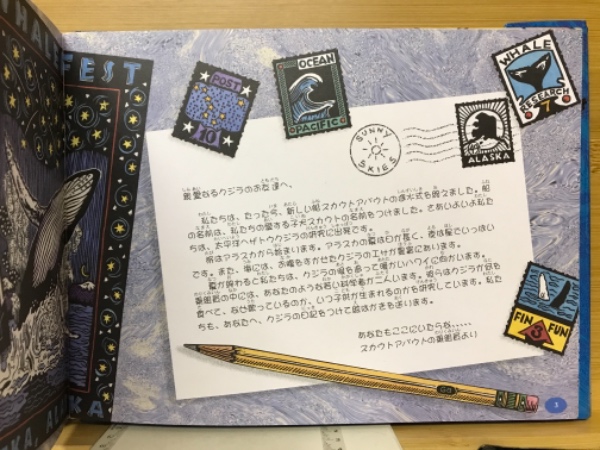 WHALE
FEST
POST
10
OCEAN
PACIFIC
WHALE
RESEARCH
7
SUNNY
SKIES
ALASKA
親愛なるクジラのお友達へ。
私たちは、たった今、新しい船スカウトアバウトの進水式を終えました。船
の名前は、私たちの愛する子犬スカウトの名前をつけました。さあいよいよ私た
ちは、太平洋へザトウクジラの研究に出発です。
旅はアラスカから始まります。アラスカの夏は日が長く、夜は星でいっぱい
です。また、海には、お腹をすかせたクジラのエサが豊富にあります。
夏が終わると私たちは、クジラの後を追って暖かいハワイに向かいます。
乗組員の中には、あなたのような若い科学者が二人います。彼らはクジラが何を
食べて、なぜ歌っているのか、いつ子供が生まれるのかを研究しています。私た
ちも、あなたへ、クジラの日記をつけて絵はがきも送ります。
あなたもここにいたらな、、、、、
スカウトアバウトの乗組員より
FIN
FUN
3
3
KA, ALASKA